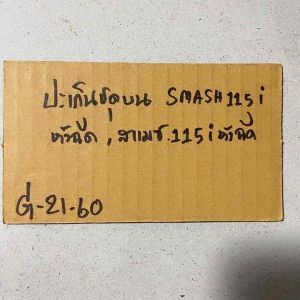 ปะเก็นชุดบน SMASH 115 i
หัวฉีด , สแมช.115 i หัวฉีด
G-21-60